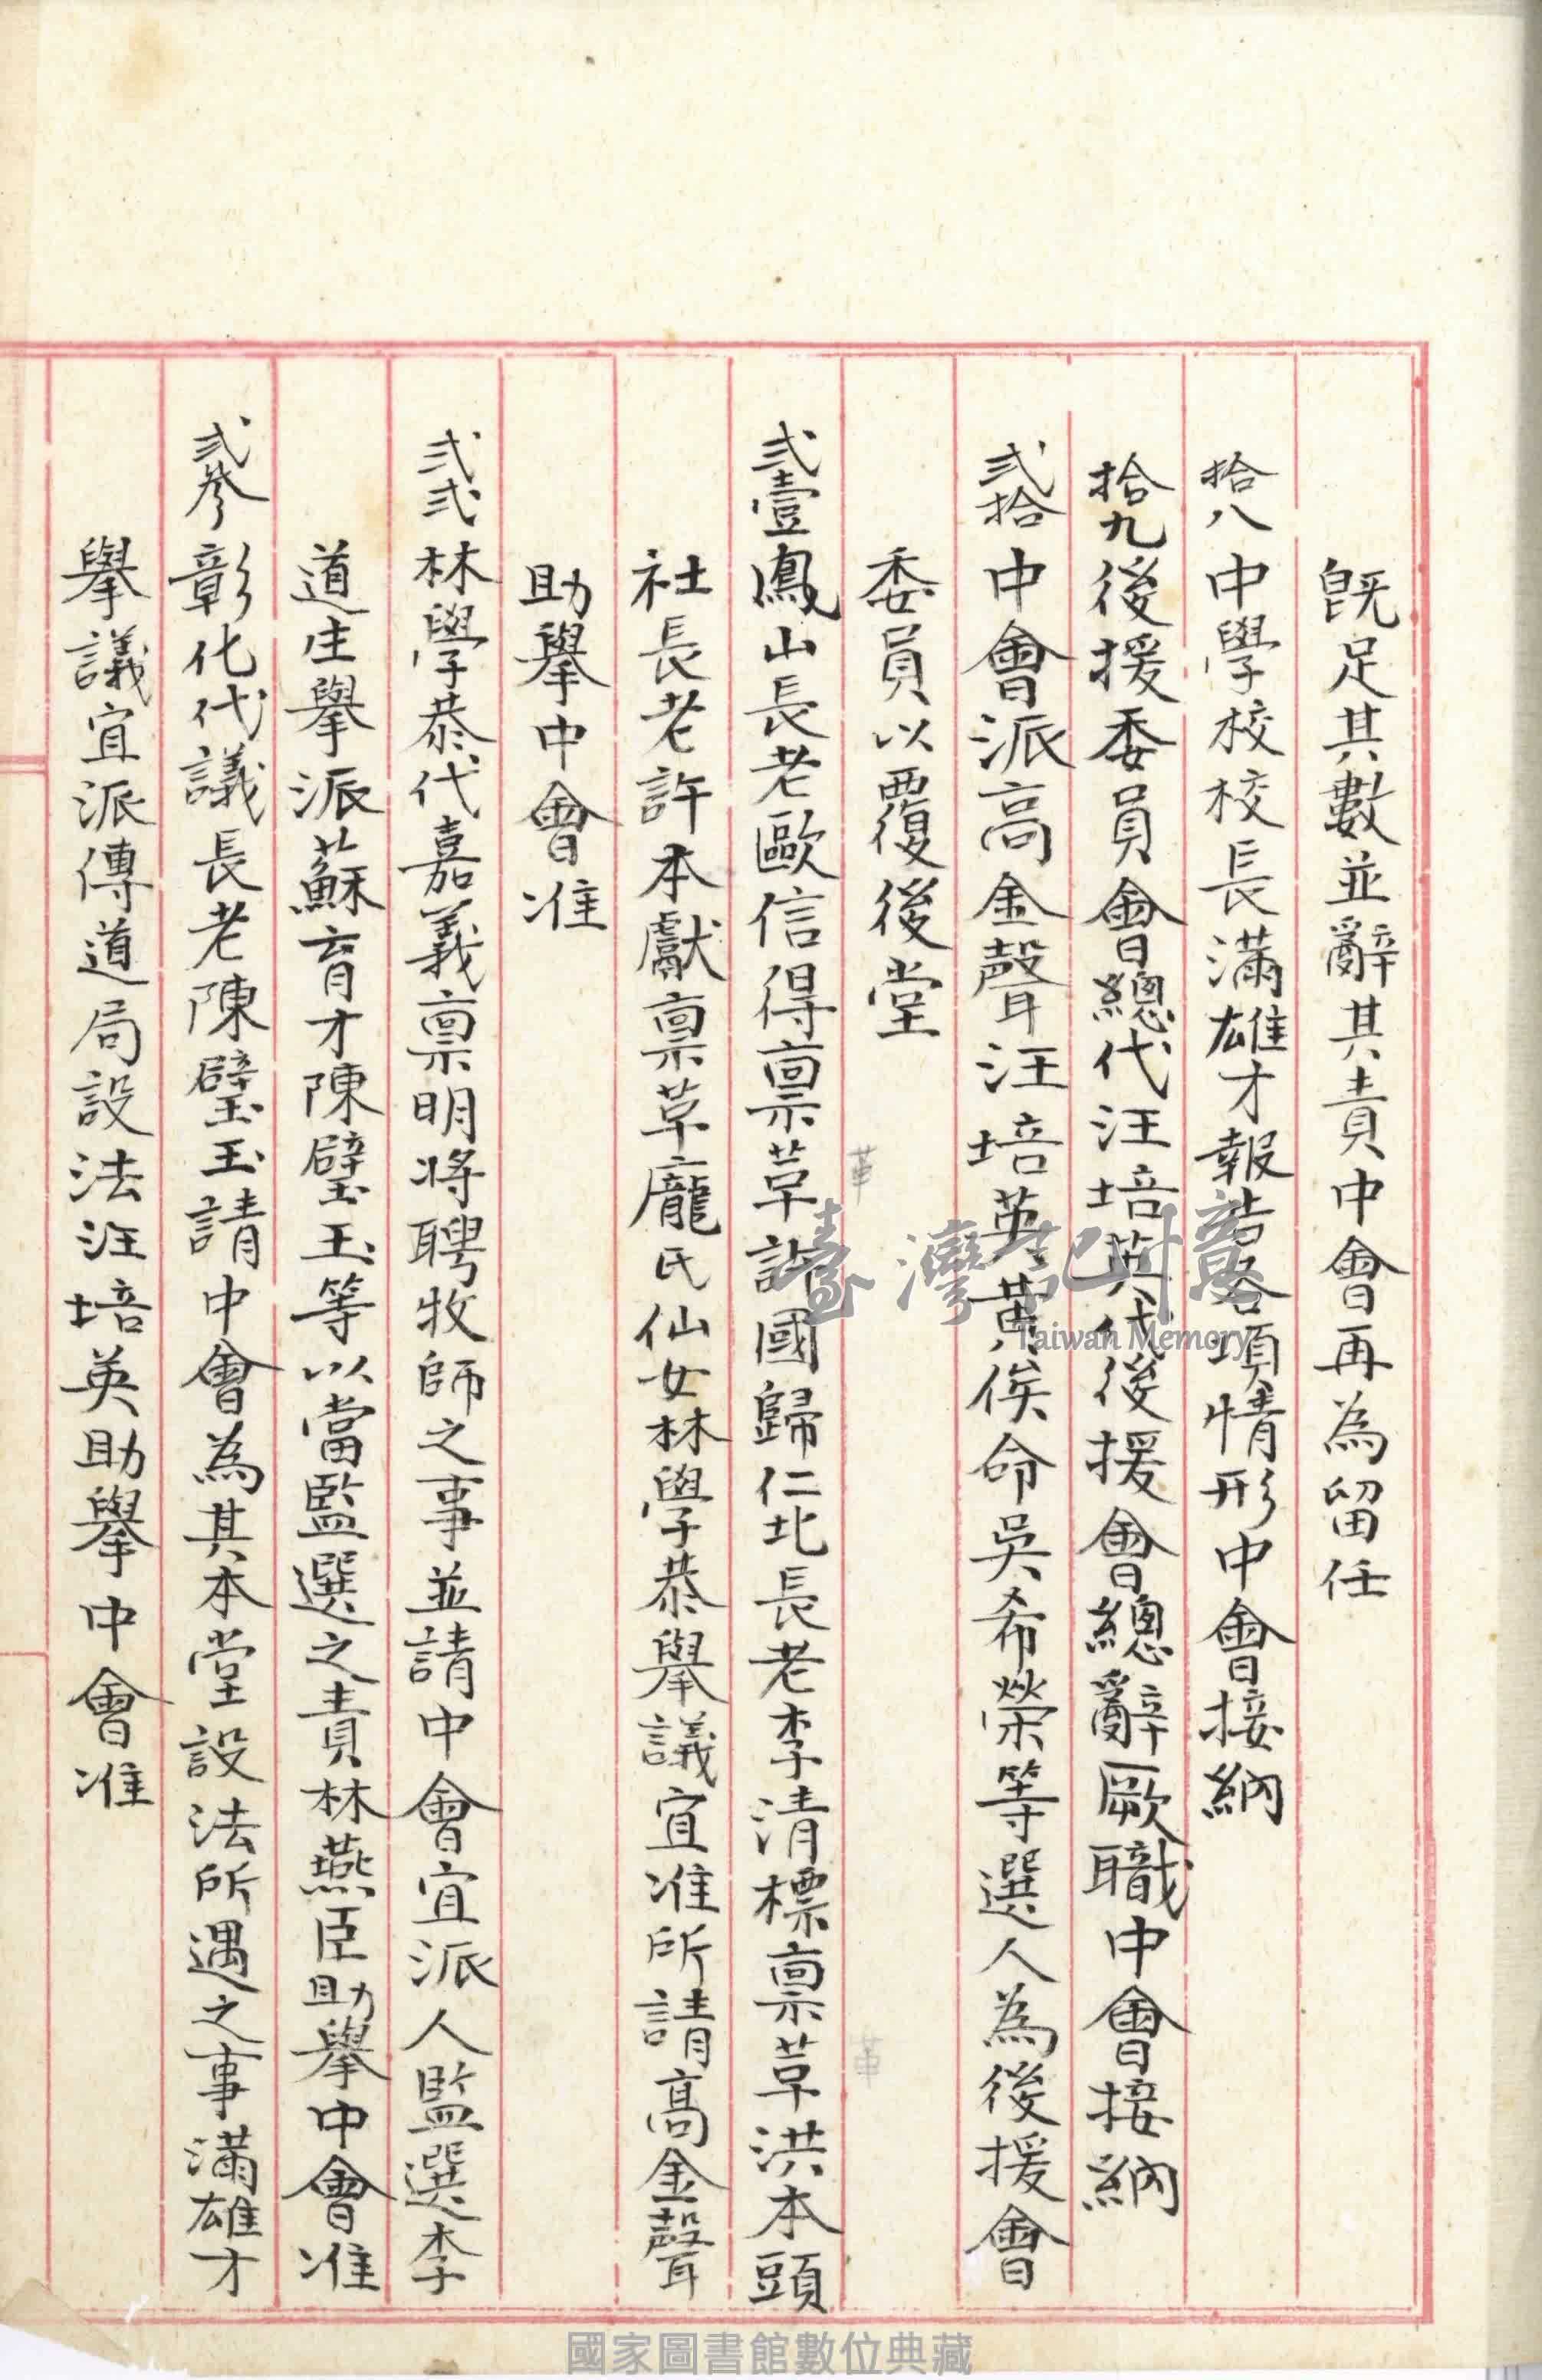 旣足其數並辭其責中會再為留任
拾八中學校校長滿雄才報告各項情形中會接納
拾九後援委員會總代汪培英代後援會總辭厥職中會接納
弍拾中會派高金聲汪培英黃俟命吳希榮等選人為後援會
委員以覆後堂
弍壹鳳山長老歐信得禀草許國歸仁北長老李清標禀草洪本頭
社長老許本獻禀草龐氏仙女林學恭擧議宜准所請高金聲
助擧中會准
弍弍林學恭代嘉義禀明将聘牧師之事並請中會宜派人監選李
道生擧派蘇育才陳璧玉等以當監選之責林燕臣助擧中會准
弍參彰化代議長老陳璧玉請中會為其本堂設法所遇之事滿雄才
擧議宜派傳道局設法汪培英助擧中會准
革
革
臺灣記憶
Taiwan Memory
國家圖書館數位典藏